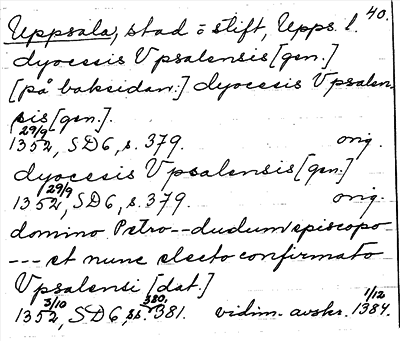 40.
Uppsala, stad o stift, Upps. l.
dyocesis Vpsalensis [gen.]
[på baksidan:] dyocesis Vpsalen-
sis [gen.].
29/9
1352, SD6, s. 379. orig.
dyocesis Vpsalensis [gen.]
29/9
1352, SD6, s. 379. orig.
domino Petro -- dudum episcopo
--- et nunc electo confirmato
Vpsalensi [dat.]
3/10 380, 1/12
1352, SD6, ss. 381. vidim. avskr. 1384.